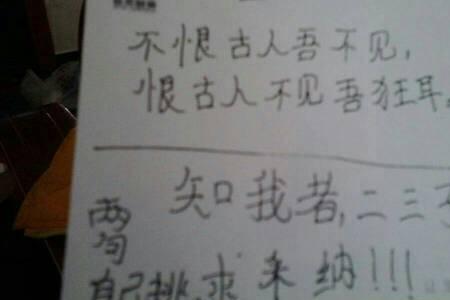 不恨古人吾不见，
恨古人不见吾狂耳。
知我者，二三子
两句
自己挑求采纳!!!